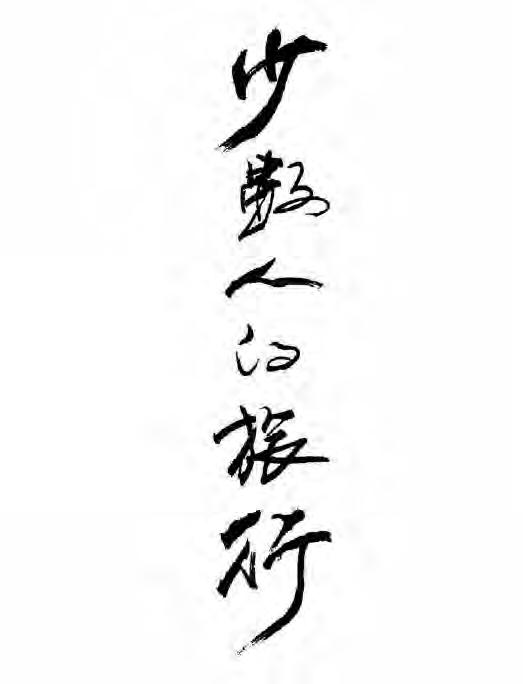 少數人的旅行